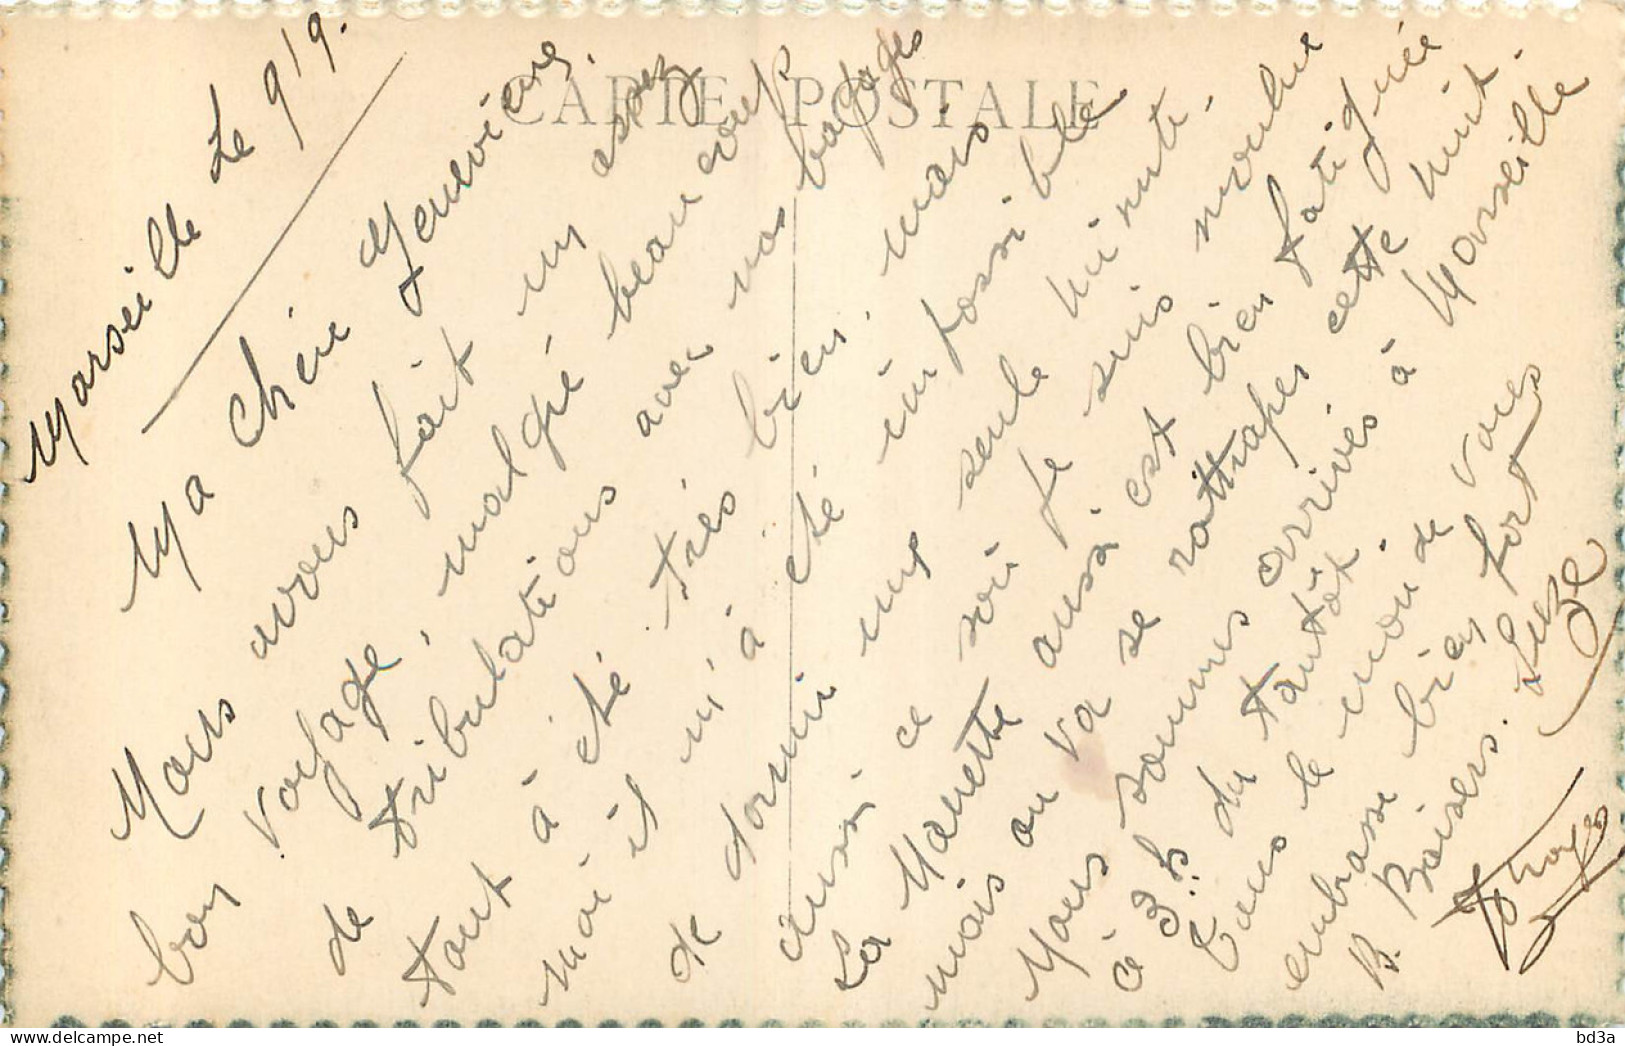 CARTE POSTALE
Marseille Le 9/9.
Ma chère Geneviève,
Nous avons fait un assez
bon voyage, malgré beaucoup
de tribulations avec nos bagages
tout à été très bien, mais
moi il m'à été impossible
de dormir une seule minute.
aussi ce soir je suis moulue
La Manette aussi est bien fatiguée
mais on va se rattraper cette nuit.
Nous sommes arrivés à Marseille
à 3h du tantôt.
Tous le monde vous
embrasse bien fort
B. Baisers. Luze
bd3a